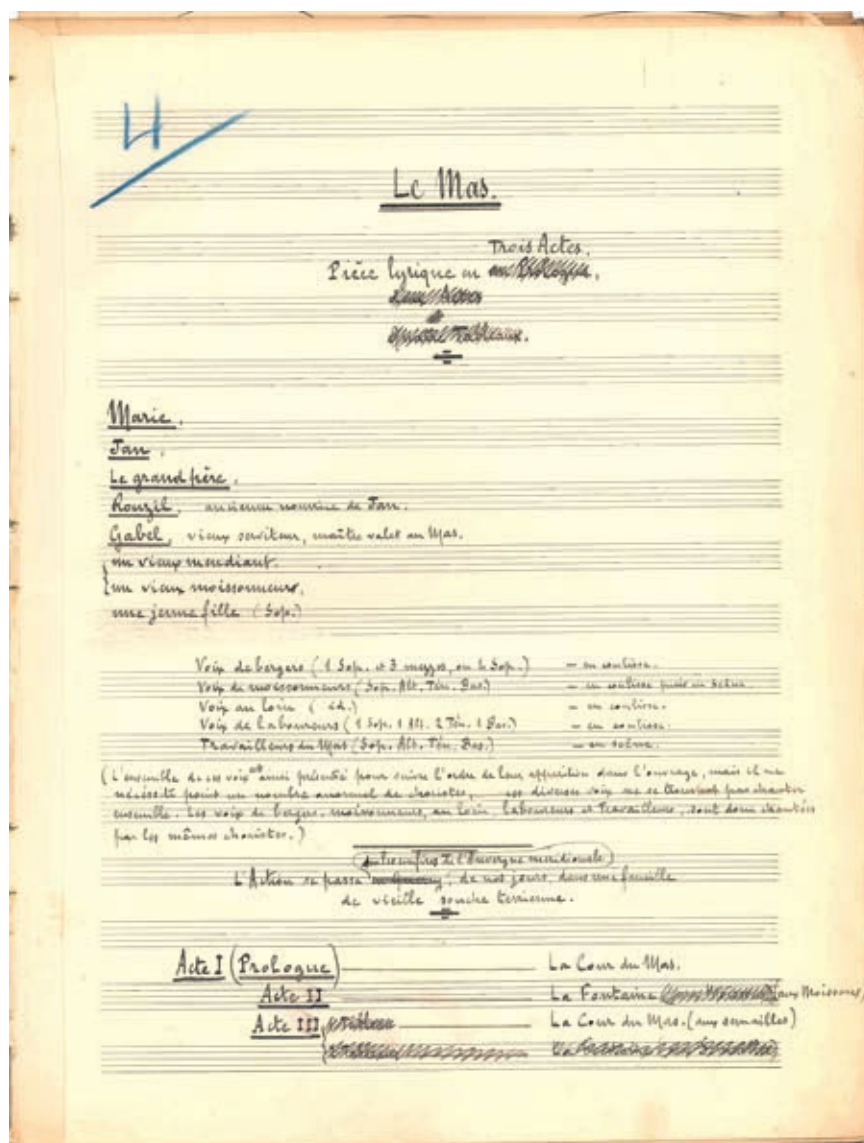 4
Le Mas.
Trois Actes.
Pièce lyrique en
Marie.
Jan.
Le grand père.
Rouzil, ancienne nourrice de Jan.
Gabel, vieux serviteur, maître valet au Mas.
un vieux mendiant.
un vieux moissonneur.
une jeune fille (Sop.)
Voix de bergers (1 Sop. et 3 mezzos, ou 4 Sop.) – en coulisse.
Voix de moissonneurs (Sop. Alt. Tén. Bas.) – en coulisse puis en scène.
Voix au loin (id.) – en coulisse.
Voix de laboureurs (1 Sop. 1 Alt. 2 Tén. 1 Bas.) – en coulisse.
Travailleurs du Mas (Sop. Alt. Tén. Bas.) – en scène.
(L'ensemble de ces voix est ainsi présenté pour suivre l'ordre de leur apparition dans l'ouvrage, mais il ne
nécessite point un nombre anormal de choristes, ces diverses voix ne se trouvant pas chanter
ensemble. Les voix de bergers, moissonneurs, au loin, laboureurs et Travailleurs, sont donc chantées
par les mêmes choristes.)
aux confins de l'Auvergne méridionale)
L'Action se passe en Quercy, de nos jours, dans une famille
de vieille souche terrienne.
Acte I (Prologue) La Cour du Mas.
Acte II La Fontaine (aux Moissons)
Acte III La Cour du Mas. (aux semailles)